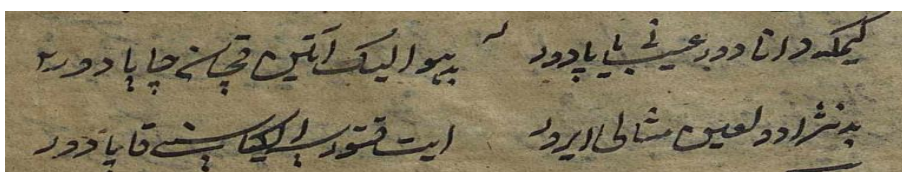 کیمکه دانا دور عیب نی یاپادور بیهوا لیک آتین قچانے چاپادور
بدنژاد و لعین مثالی ایرور ایت قتورسه ایکاسینے قاپادور